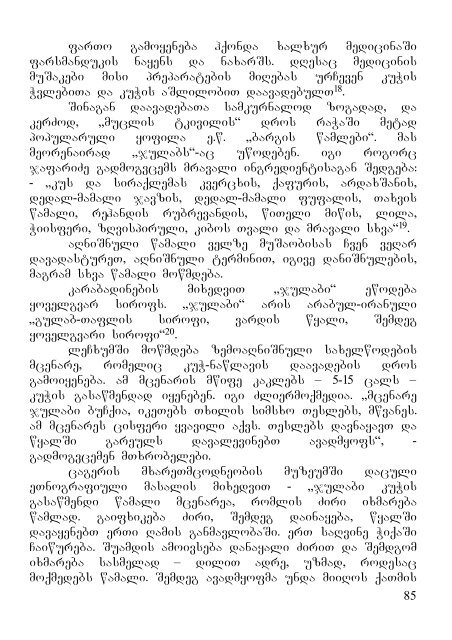 ფართო გამოყენება ჰქონდა ხალხურ მედიცინაში
ფარსმანდუკის ნაყენს და ნახარშს. დღესაც მედიცინის
მუშაკები მისი პრეპარატების მიღებას ურჩევენ კუჭის
ჭვლებითა და კუჭის აშლილობით დაავადებულთ18.
შინაგან დაავადებათა სამკურნალოდ ზოგადად, და
კერძოდ, „მუცლის ტკივილის“ დროს რაჭაში მეტად
პოპულარული ყოფილა ე.წ. „ბარგის წამლები“. მას
მეორენაირად „ჯულაბს“-აც უწოდებენ. იგი როგორც
ჯაფარიძე გადმოგვცემს მრავალი ინგრედიენტისაგან შედგება:
- „კუს და სირაქლემას კვერცხის, ქაფურის, არდახშანის,
დედალ-მამალი ჯავზის, დედალ-მამალი ფუფალის, თახვის
წამალი, რეჰანდის რუბრევანდის, წითელი მიწის, ლილა,
ჭიისფერი, ზღვისპირული, კიბოს თვალი და მრავალი სხვა“19.
აღნიშნული წამალი ველზე მუშაობისას ჩვენ ვეღარ
დავადასტურეთ, აღნიშნული ტერმინით, იგივე დანიშნულების,
მაგრამ სხვა წამალი მოწმდება.
კარაბადინების მიხედვით „ჯულაბი“ ეწოდება
ყოველგვარ სიროფს. „ჯულაბი“ არის არაბულ-ირანული
„გულაბ-თაფლის სიროფი, ვარდის წყალი, შემდეგ
ყოველგვარი სიროფი“20.
ლეჩხუმში მოწმდება ზემოაღნიშნული სახელწოდების
მცენარე, რომელიც კუჭ-ნაწლავის დაავადების დროს
გამოიყენება. ამ მცენარის მწიფე კაკლებს – 5-15 ცალს –
კუჭის გასაწმენდად იყენებენ. იგი ძლიერმოქმედია. „მცენარე
ჯულაბი ბუჩქია, იკეთებს თხილის სიმსხო თესლებს, მწვანეს.
ამ მცენარეს ცისფერი ყვავილი აქვს. თესლებს დავნაყავთ და
წყალში გარეულს დავალევინებთ ავადმყოფს“, -
გადმოგვცემენ მთხრობელები.
ცაგერის მხარეთმცოდნეობის მუზეუმში დაცული
ეთნოგრაფიული მასალის მიხედვით - „ჯულაბი კუჭის
გასაწმენდი წამალი მცენარეა, რომლის ძირი იხმარება
წამლად. გაიფხიკება ძირი, შემდეგ დაინაყება, წყალში
დავაყენებთ ერთი ღამის განმავლობაში. ერთ საღვინე ჭიქაში
ჩაიწურება. შუამდის ამოივსება დანაყალი ძირით და შემდგომ
იხმარება სასმელად – დილით ადრე, უზმად, როდესაც
მოქმედებს წამალი. შემდეგ ავადმყოფმა უნდა მიიღოს ქათმის
85